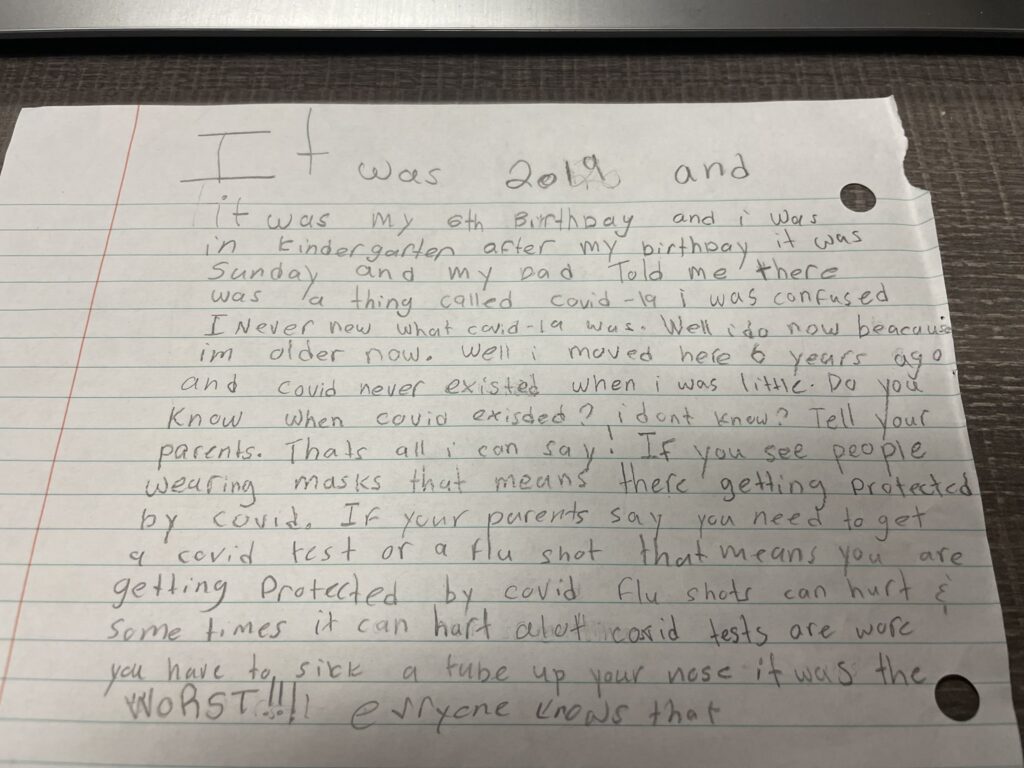 It was 2019 and
it was my 6th Birthday and i was
in kindergarten after my birthday it was
Sunday and my Dad Told me there
was a thing called covid-19 i was confused
I Never now what covid-19 was. Well i do now beacause
im older now. Well i moved here 6 years ago
and covid never existed when i was little. Do you
know when covid exisded? i dont know? Tell your
parents. Thats all i can say! If you see people
wearing masks that means there getting protected
by covid. If your parents say you need to get
a covid test or a flu shot that means you are
getting Protected by covid flu shots can hurt &
some times it can hart alot covid tests are worc
you have to sick a tube up your nose it was the
WORST!!!! erryone knows that